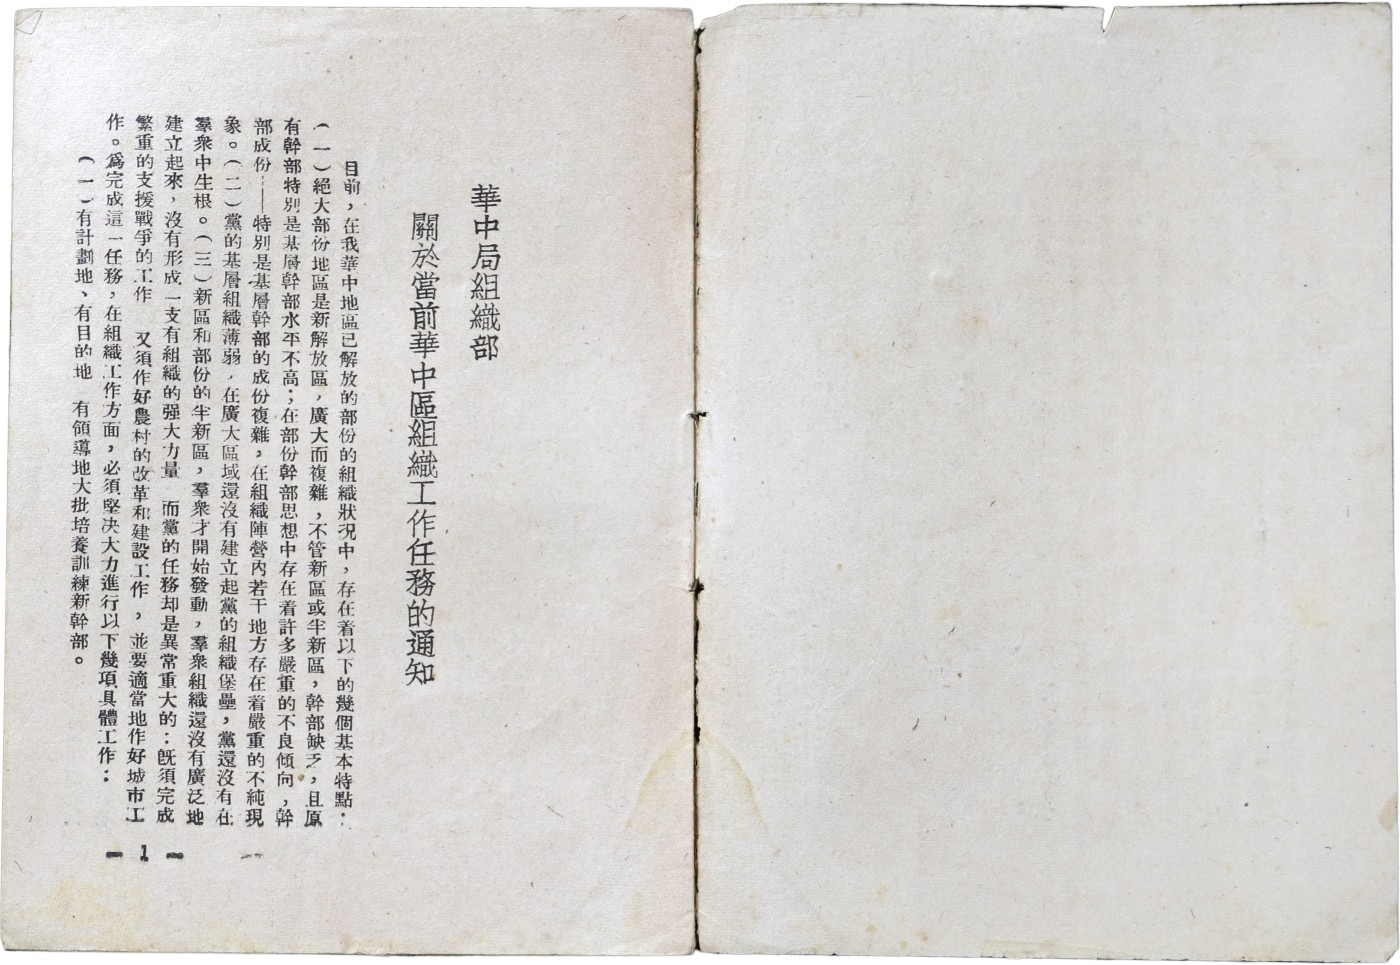 華中局組織部
關於當前華中區組織工作任務的通知
目前，在我華中地區已解放的部份的組織狀况中，存在着以下的幾個基本特點：
（一）絕大部份地區是新解放區，廣大而複雜，不管新區或半新區，幹部缺乏，且原
有幹部特別是基層幹部水平不高；在部份幹部思想中存在着許多嚴重的不良傾向，幹
部成份——特別是基層幹部的成份複雜，在組織陣營內若干地方存在着嚴重的不純現
象。（二）黨的基層組織薄弱，在廣大區域還沒有建立起黨的組織堡壘，黨還沒有在
羣衆中生根。（三）新區和部份的半新區，羣衆才開始發動，羣衆組織還沒有廣泛地
建立起來，沒有形成一支有組織的强大力量　而黨的任務却是異常重大的：旣須完成
繁重的支援戰爭的工作　又須作好農村的改革和建設工作，並要適當地作好城市工
作。爲完成這一任務，在組織工作方面，必須堅决大力進行以下幾項具體工作：
（一）有計劃地、有目的地　有領導地大批培養訓練新幹部。
— 1 —